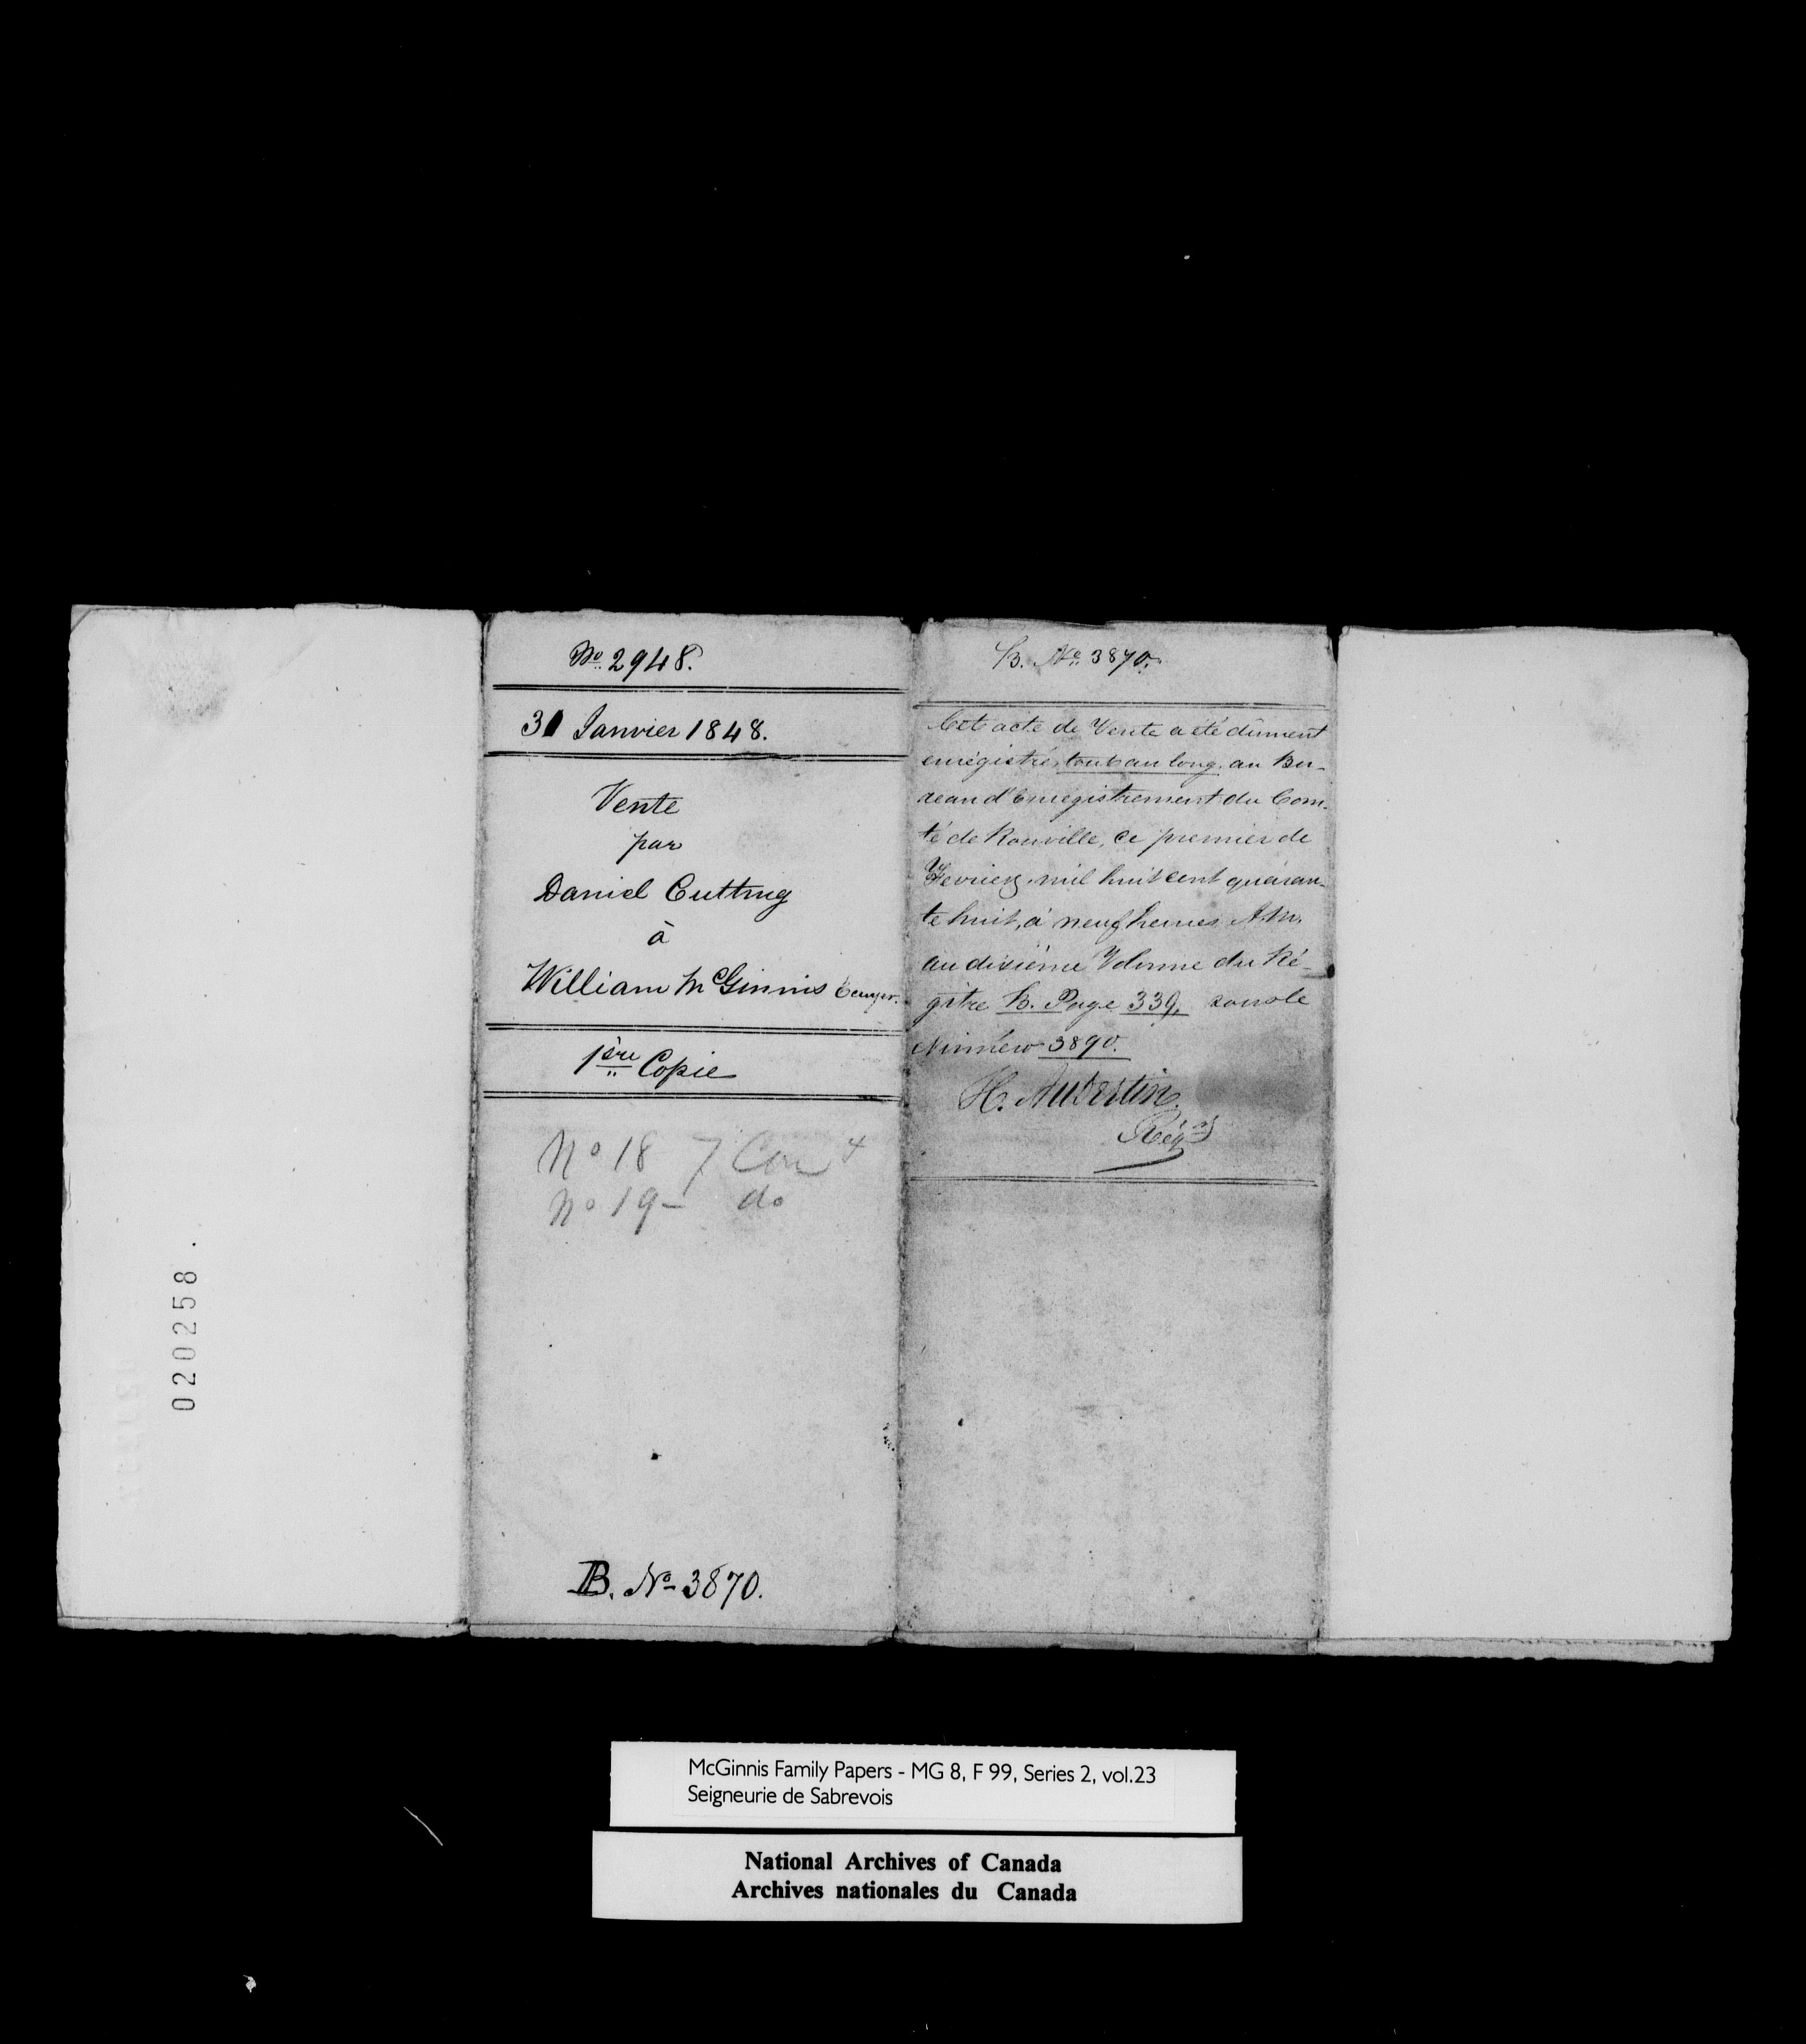 No. 2948.
31 Janvier 1848.
Vente
par
Daniel Cutting
à
William McGinnis Ecuyer.
1ère Copie
No 18 7 Con 4
No 19 - do
B. No 3870.
B. No. 3870.
Cet acte de Vente a été dûment
enrégistré, tout au long, au Bu-
reau d'Enregistrement du Com-
té de Rouville, ce premier de
Fevrier, mil huit cent quaran-
te huit, à neuf heures A.M.
au dixième Volume du Ré-
gitre B. Page 339, sous le
Numéro 3890.
H. Aubertin
Régr
020258.
McGinnis Family Papers - MG 8, F 99, Series 2, vol.23
Seigneurie de Sabrevois
National Archives of Canada
Archives nationales du Canada